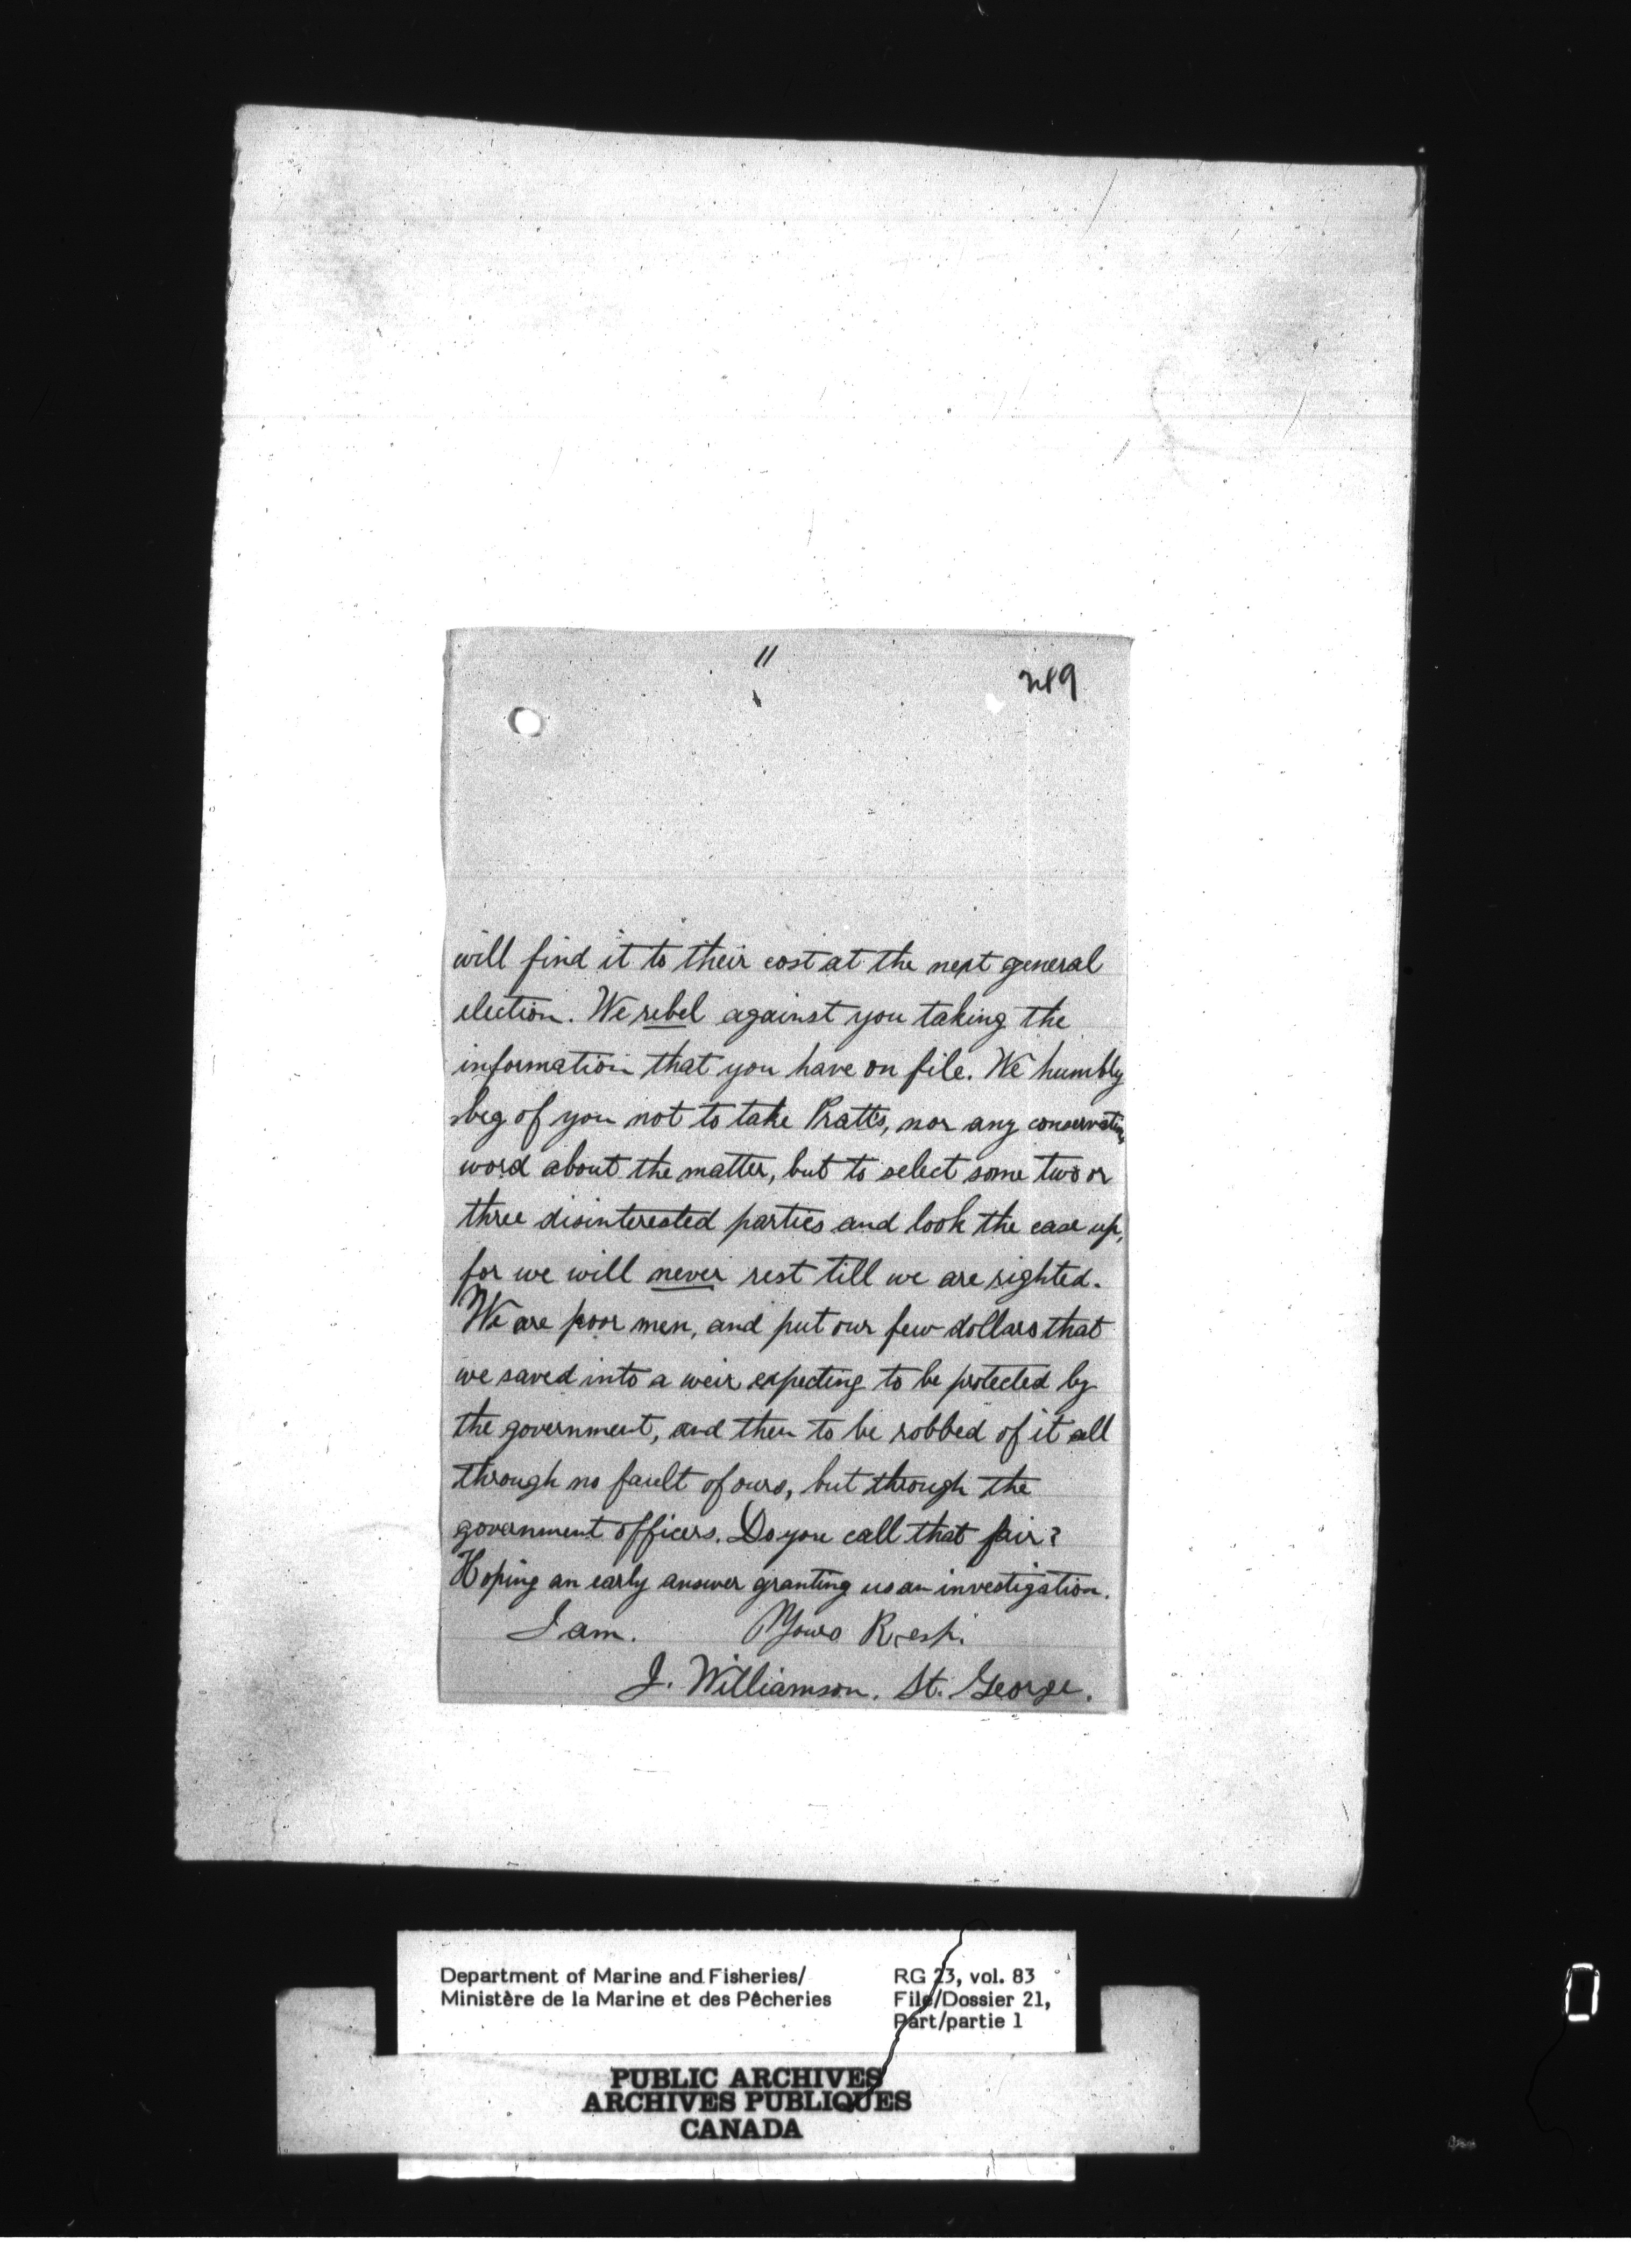 11
289
will find it to their cost at the next general
election. We rebel against you taking the
information that you have on file. We humbly
beg of you not to take Pratt's, nor any conservative
word about the matter, but to select some two or
three disinterested parties and look the case up,
for we will never rest till we are righted.
We are poor men, and put our few dollars that
we saved into a weir expecting to be protected by
the government, and then to be robbed of it all
through no fault of ours, but through the
government officers. Do you call that fair?
Hoping an early answer granting us an investigation.
I am. Yours Resp.
J. Williamson. St. George.
Department of Marine and Fisheries/
Ministère de la Marine et des Pêcheries
RG 23, vol. 83
File/Dossier 21,
Part/partie 1
PUBLIC ARCHIVES
ARCHIVES PUBLIQUES
CANADA